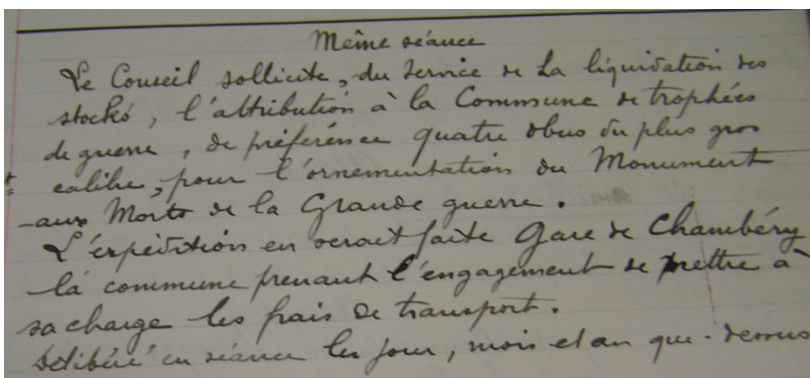 Même séance
Le Conseil sollicite, du service de la liquidation des
stocks, l'attribution à la Commune de trophées
de guerre, de préférence quatre obus du plus gros
calibre, pour l'ornementation du Monument
aux Morts de la Grande guerre.
L'expédition en serait faite Gare de Chambéry
la commune prenant l'engagement de mettre à
sa charge les frais de transport.
Délibéré en séance les jour, mois et an que dessus